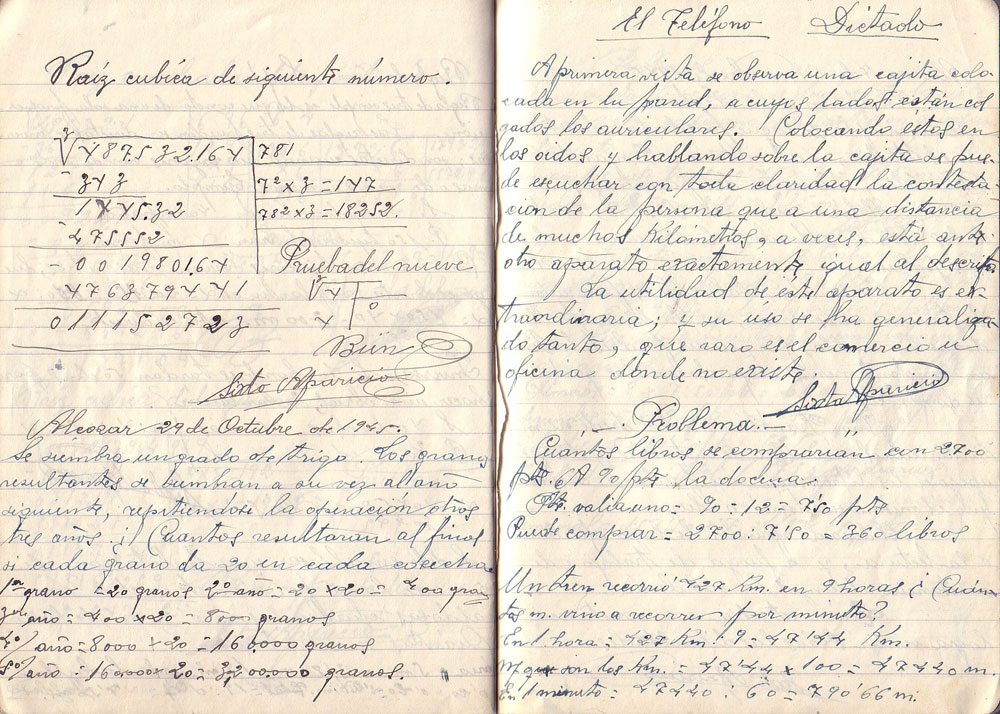 Raíz cubica de siguiente número.
3√487.532.164 | 781
- 343 7²x3=147
1445.32 78²x3=18252.
- 475552
- 0019801.64 Prueba del nueve
476379441 3√4 | 0
011152723 4
Bien
Sixto Aparicio
Alcozar 29 de Octubre de 1945.
Se siembra un grado de trigo. Los granos
resultantes se siembran a su vez al año
siguiente, repitiendose la operación otros
tres años. ¿ Cuantos resultaran al final
si cada grano da 20 en cada cosecha
1er grano = 20 granos 2º año = 20 x 20 = 400 granos
3er año = 400 x 20 = 8000 granos
4º/ año = 8000 x 20 = 160000 granos
5º/ año : 160000 x 20 = 3,200.000 granos.
El Teléfono Dictado
A primera vista se observa una cajita colo-
cada en la pared, a cuyos lados están col
gados los auriculares. Colocando éstos en
los oidos, y hablando sobre la cajita se pue-
de escuchar con toda claridad la contesta-
cion de la persona que a una distancia
de muchos Kilómetros, a veces, está ante
otro aparato exactamente igual al descrito
La utilidad de éste aparato es ex-
traordinaria; y su uso se ha generaliza-
do tanto, que raro es el comercio u
oficina donde no existe.
Sixto Aparicio
- Problema. -
Cuántos libros se comprarian con 2700
pts. A 90 pts la docena.
valia uno = 90 : 12 = 7'50 pts
Puede comprar = 2700 : 7'50 = 360 libros
Un tren recorrió 427 Km. en 9 horas ¿ Cuán-
tos m. vino a recorrer por minuto?
En 1 hora = 427 Km : 9 = 47'44 Km.
M. que son los Km. = 47'44 x 100 = 47440 m.
En 1 minuto = 47440 : 60 = 790'66 m.